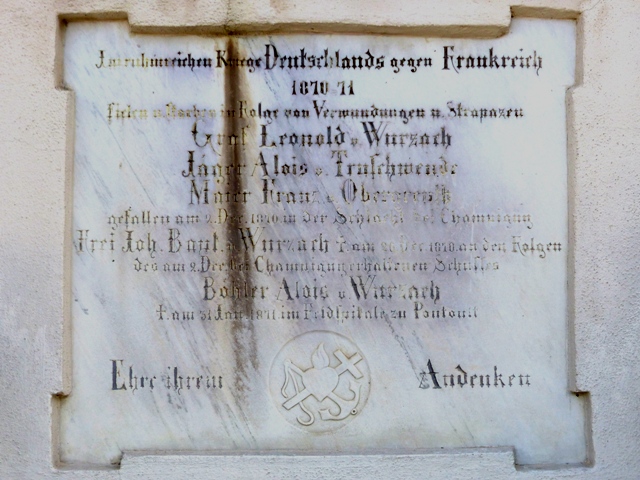 Im ruhmreichen Kriege Deutschlands gegen Frankreich
1870 71
fielen u. starben in Folge von Verwundungen u. Strapazen
Graf Leopold v. Wurzach
Jäger Alois v. Truschwende
Maier Franz v.
gefallen am 2. Dec. 1870 in der Schlacht bei Champigny
Frei Joh. Bapt. v. Wurzach † am Dec. 1870 an den Folgen
des am 2. Dec. bei Champigny erhaltenen Schusses
Bohler Alois v. Wurzach
† am 31. Jan. 1871 im Feldspitale zu Pontoult
Ehre ihrem Andenken